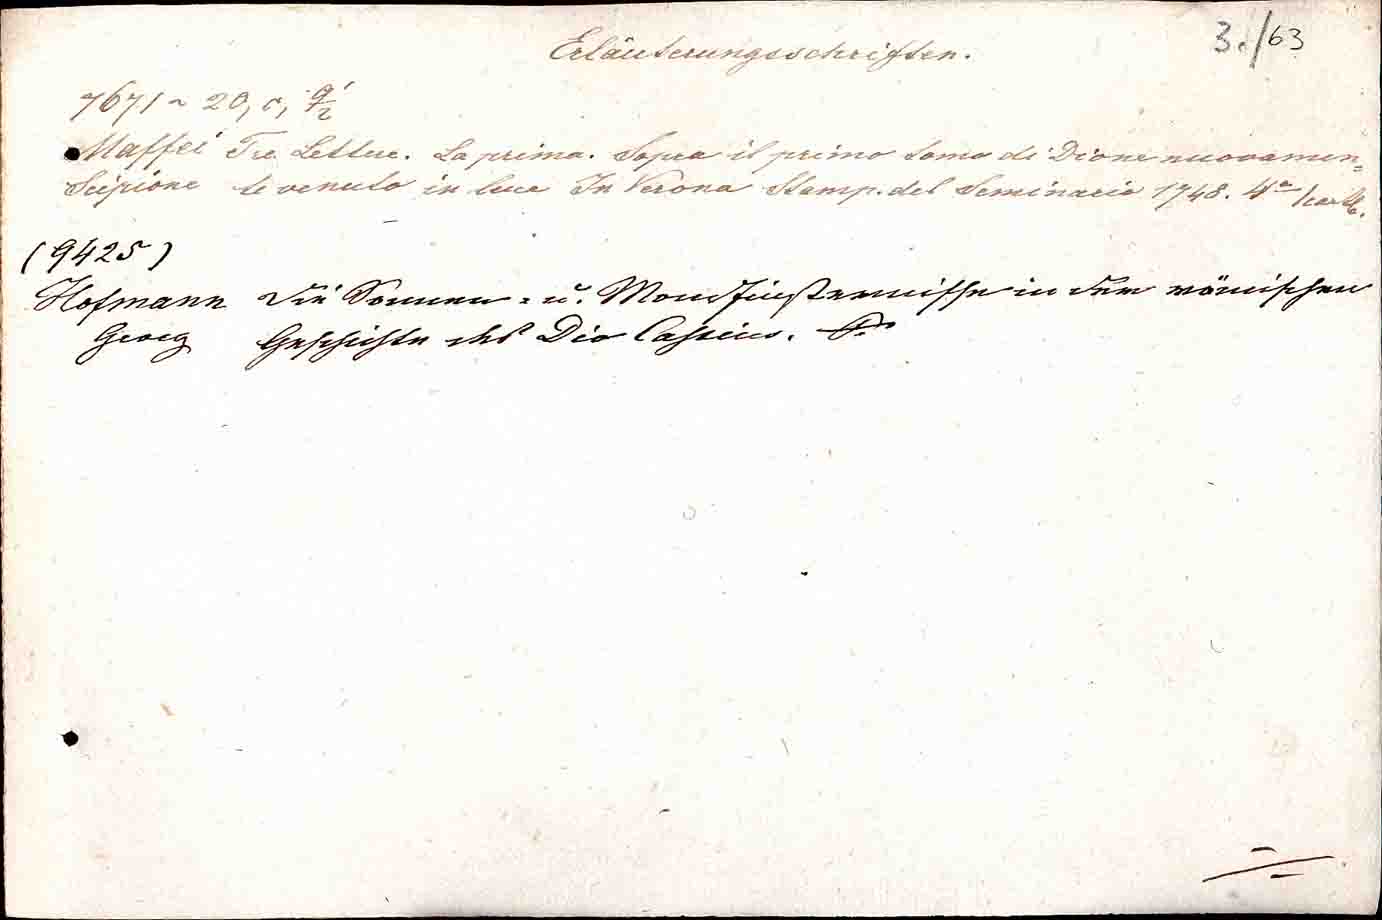 3./63
Erläuterungsschriften.
7671 ~ 20, c, 9'/2
Maffei Tre Lettere. La prima. Sopra il primo tomo di Dione nuovamen=
Scipione te venuto in luce In Verona Stamp. del Seminario 1748. 4° /cart.
(9425)
Hofmann Die Sonnen- u. Mondfinsternisse in der römischen
Georg Geschichte des Dio Cassius.